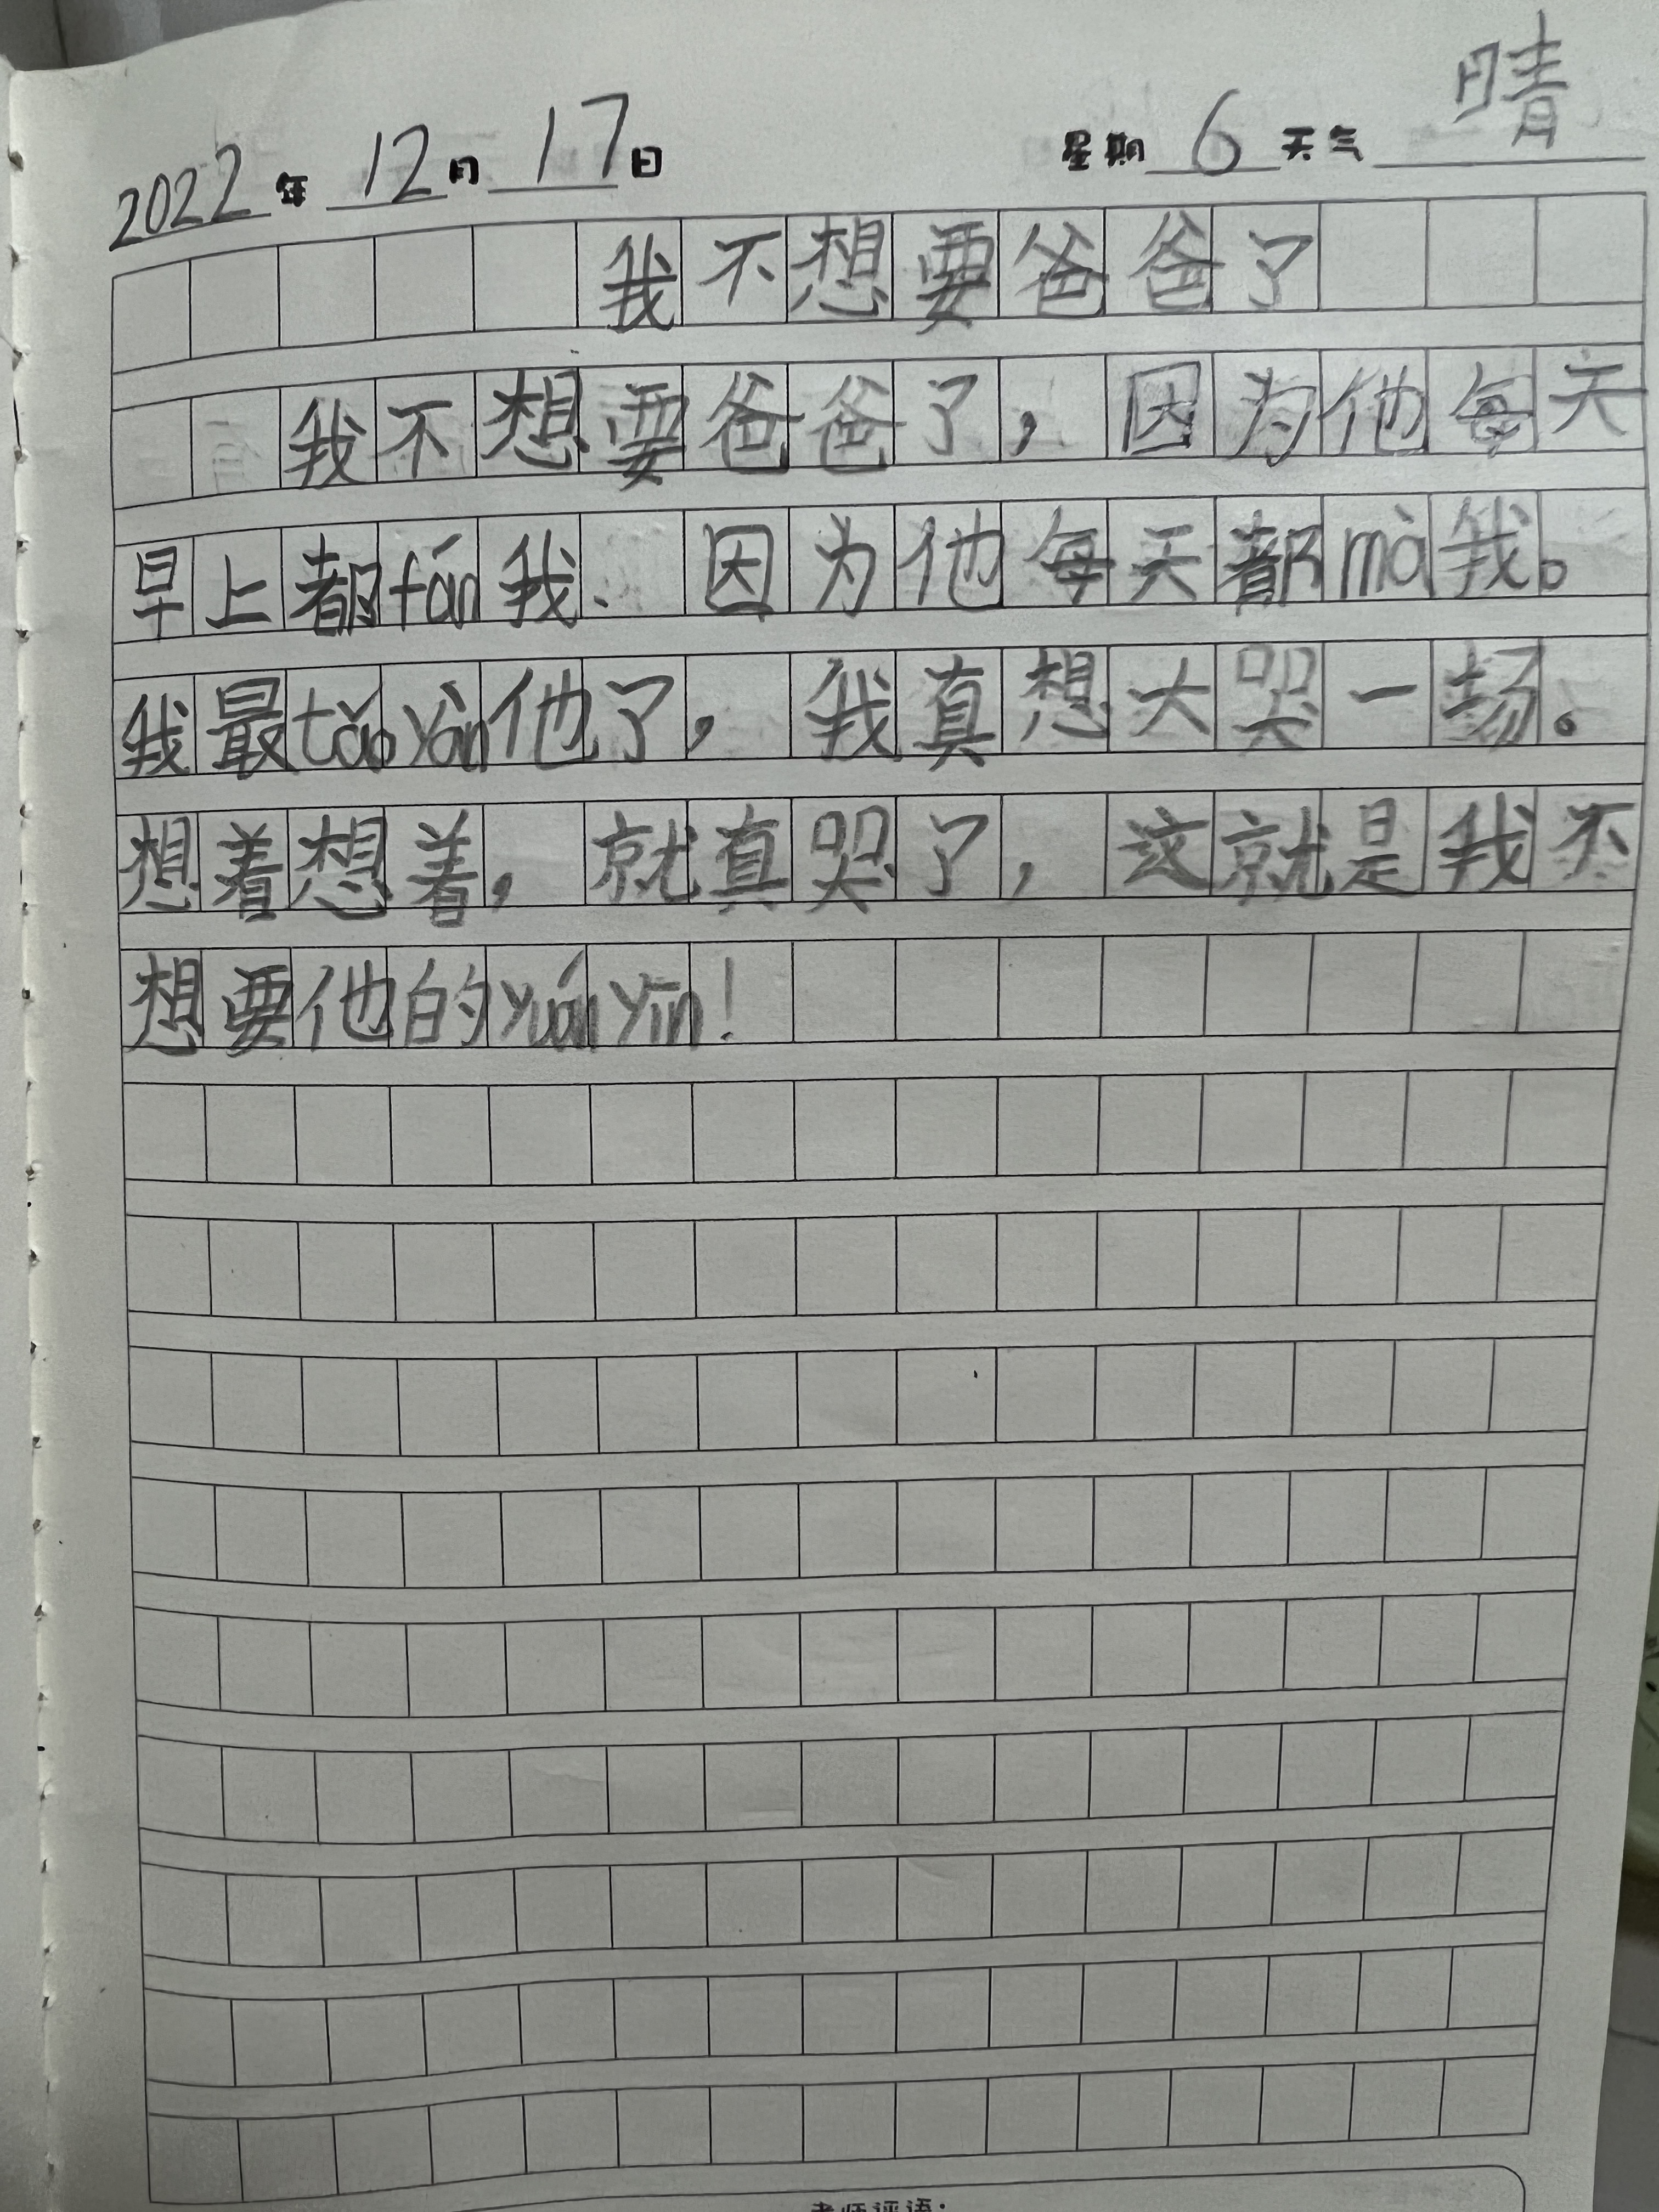 2022年12月17日 星期6天气晴
我不想要爸爸了
我不想要爸爸了，因为他每天
早上都fán我.因为他每天都mà我。
我最tǎo yàn他了，我真想大哭一场。
想着想着，就真哭了，这就是我不
想要他的yuán yīn！
老师评语：